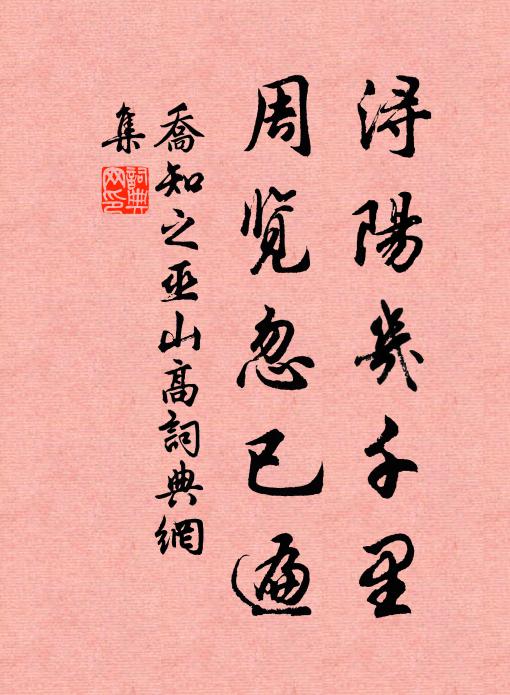 浔陽幾千里
周览忽已遍
喬知之巫山高詞典網
集
詞典網印